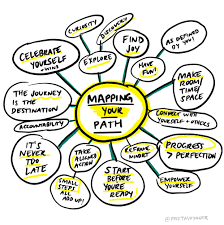 CURIOSITY
DISCOVERY
CELEBRATE
YOURSELF
+ WINS
EXPLORE
FIND
JOY
HAVE
FUN!
AS DEFINED
BY YOU!
MAKE
ROOM/
TIME/
SPACE
THE JOURNEY
IS THE
DESTINATION
ACCOUNTABILITY
MAPPING
YOUR
PATH
CONNECT WITH
YOURSELF + OTHERS
IT'S
NEVER
TOO
LATE
TAKE
ALIGNED
ACTION
SMALL
STEPS
ALL
ADD UP!
START
BEFORE
YOU'RE
READY
MINDSET
PROGRESS
> PERFECTION
EMPOWER
YOURSELF